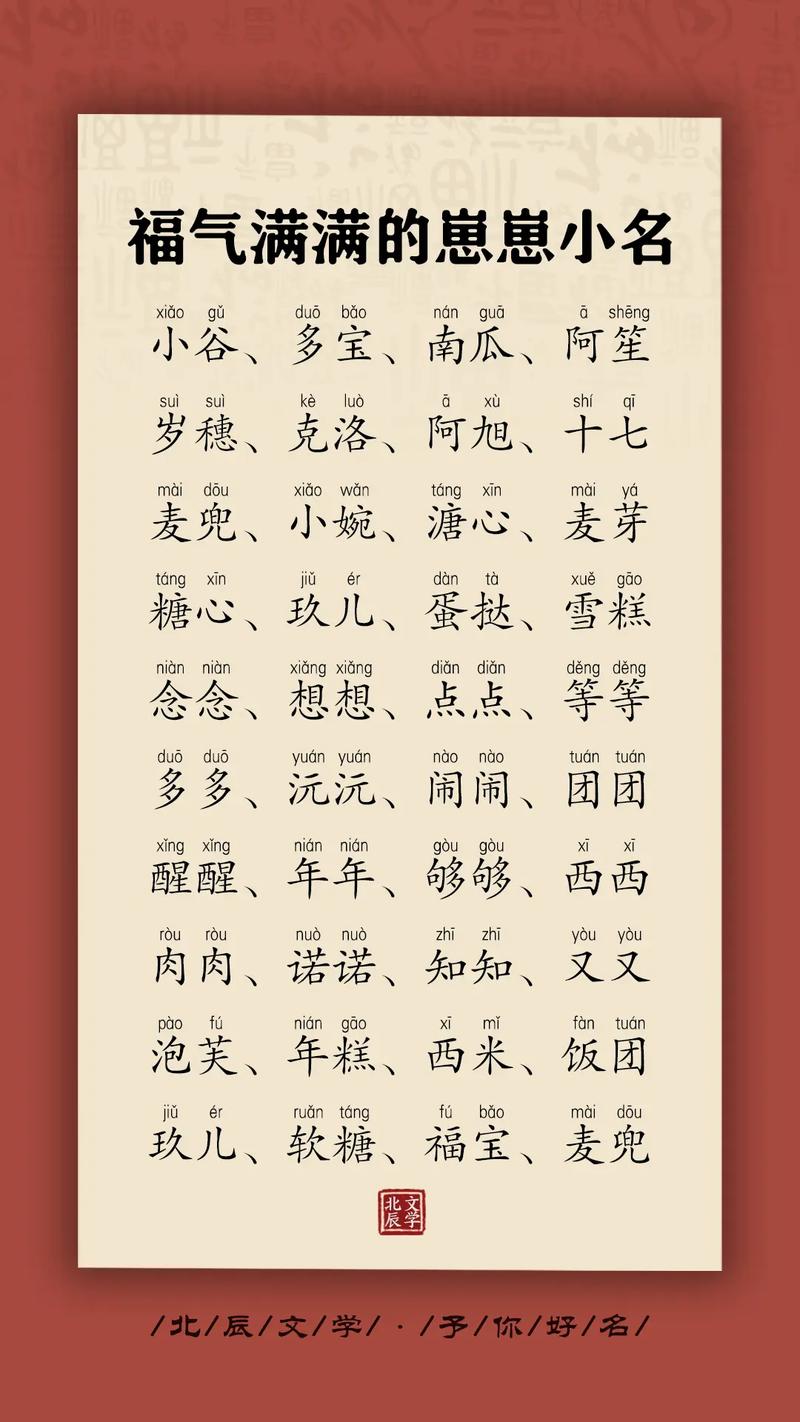 福气满满的崽崽小名
xiǎo gǔ duō bǎo nán guā ā shēng
小谷、多宝、南瓜、阿笙
suì suì kè luò ā xù shí qī
岁穗、克洛、阿旭、十七
mài dōu xiǎo wǎn táng xīn mài yá
麦兜、小婉、溏心、麦芽
táng xīn jiǔ ér dàn tà xuě gāo
糖心、玖儿、蛋挞、雪糕
niàn niàn xiǎng xiǎng diǎn diǎn děng děng
念念、想想、点点、等等
duō duō yuán yuán nào nào tuán tuán
多多、沅沅、闹闹、团团
xǐng xǐng nián nián gòu gòu xī xī
醒醒、年年、够够、西西
ròu ròu nuò nuò zhī zhī yòu yòu
肉肉、诺诺、知知、又又
pào fú nián gāo xī mǐ fàn tuán
泡芙、年糕、西米、饭团
jiǔ ér ruǎn táng fú bǎo mài dōu
玖儿、软糖、福宝、麦兜
北辰文学
/北/辰/文/学/·/予/你/好/名/